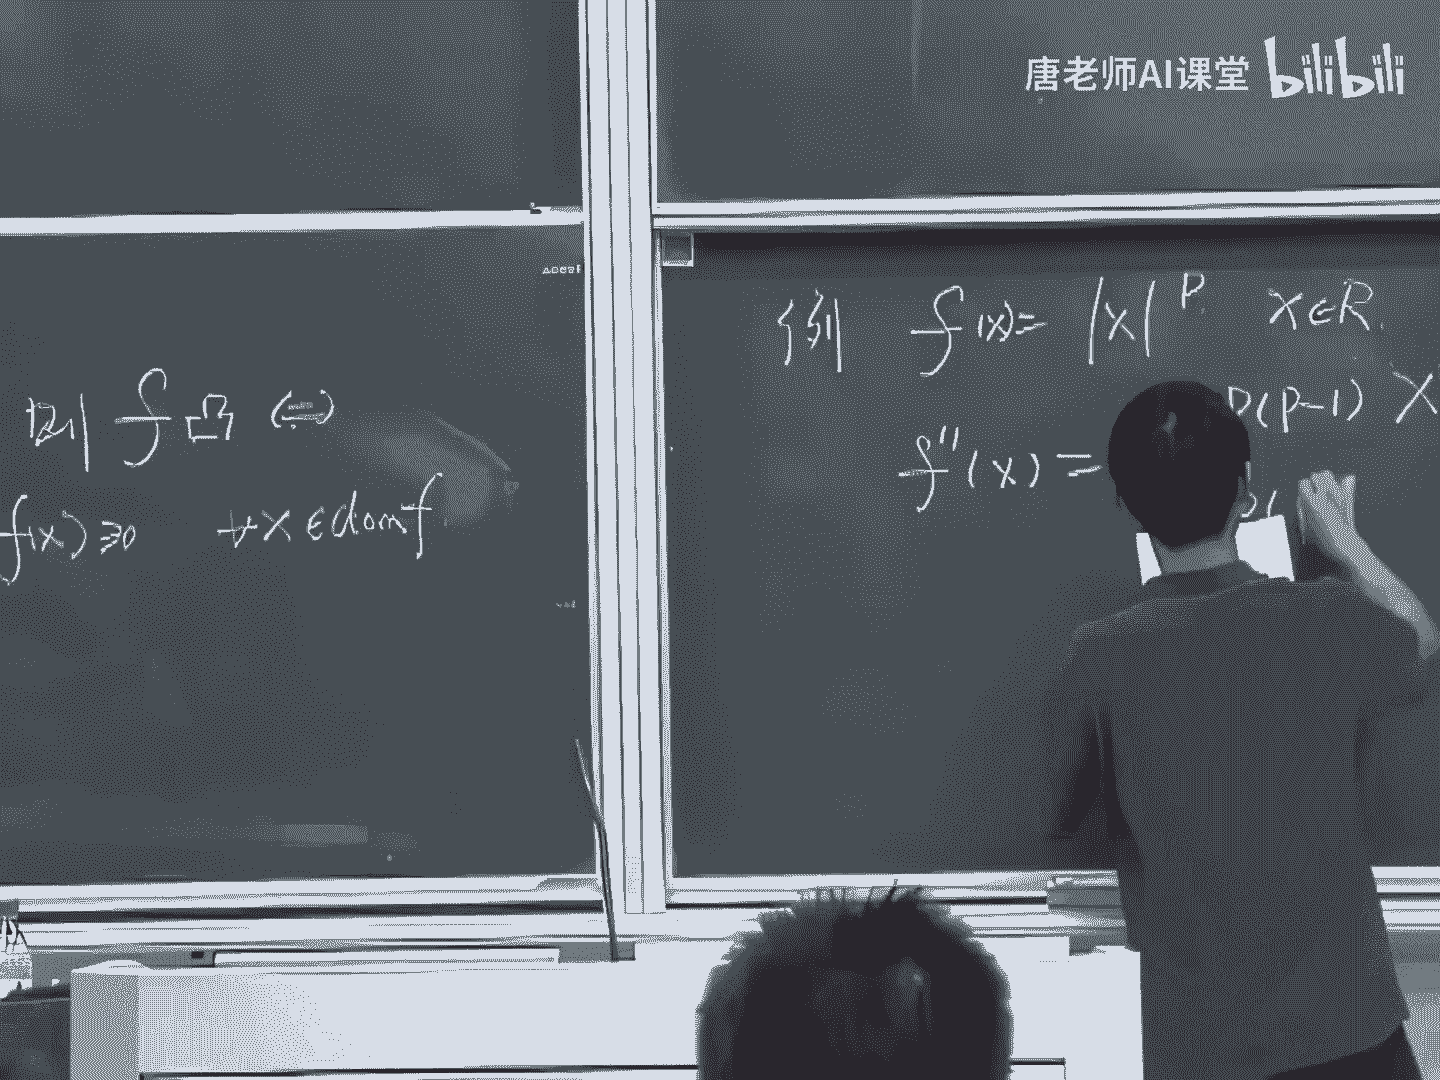 唐老师AI课堂 bilibili
则 f 凸 ⇔
f(x) ≥0 ∀x∈dom f
例 f(x)= |x|^P x∈R.
P(P-1) X
f''(x) =